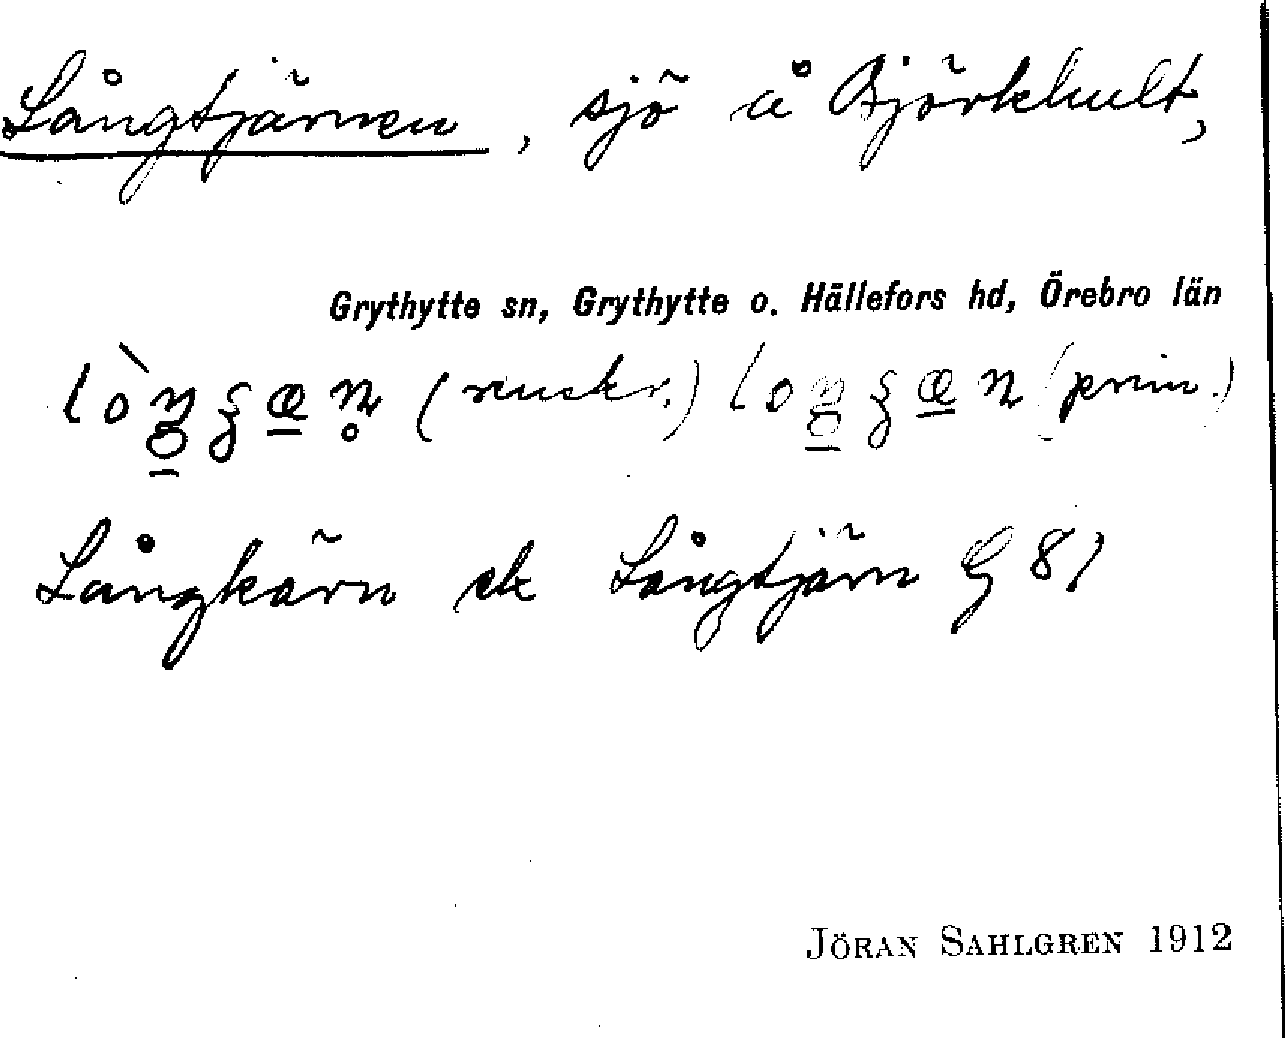 Långtjärnen, sjö å Björkhult,
Grythytte sn, Grythytte o. Hällefors hd, Örebro län
(prim.)
Långkärn el Långtjärn G 81
JÖRAN SAHLGREN 1912